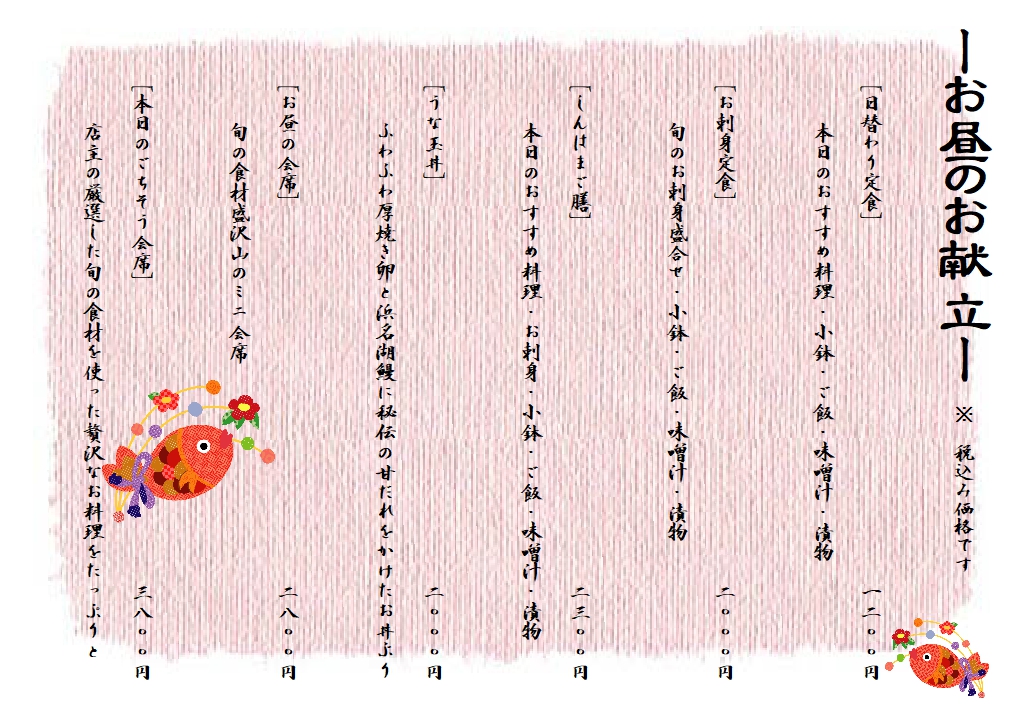 ーお昼のお献立ー ※ 税込み価格です
[日替わり定食] 一二００円
本日のおすすめ料理・小鉢・ご飯・味噌汁・漬物
[お刺身定食] 二０００円
旬のお刺身盛合せ・小鉢・ご飯・味噌汁・漬物
[しんはまご膳] 二三００円
本日のおすすめ料理・お刺身・小鉢・ご飯・味噌汁・漬物
[うな玉丼] 二０００円
ふわふわ厚焼き卵と浜名湖鰻に秘伝の甘だれをかけたお丼ぶり
[お昼の会席] 二八００円
旬の食材盛沢山のミニ会席
[本日のごちそう会席] 三八００円
店主の厳選した旬の食材を使った贅沢なお料理をたっぷりと